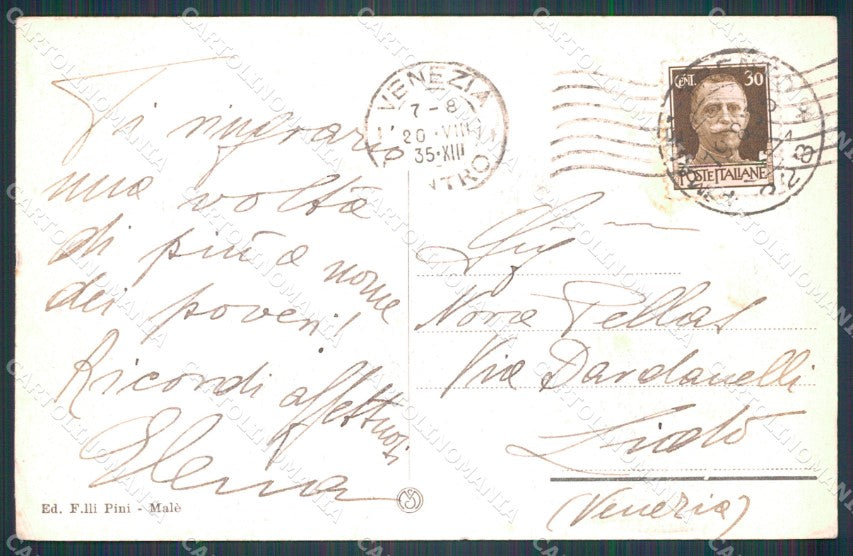 Ti ringrazio
una volta
di più a nome
dei poveri!
Ricordi affettuosi
Elena
Ed. F.lli Pini - Malè
VENEZIA
7-8
20·VIII
35·XIII
CENTRO
CENT. 30
POSTE ITALIANE
Sig
Nora Pellas
Via Dardanelli
Lido
(Venezia)
CARTOLINOMANIA